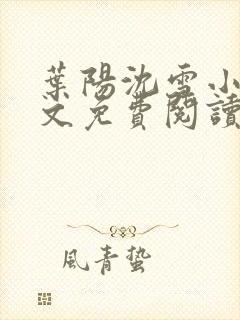 葉陽沈雪小
文免費閱讀
風青蟄